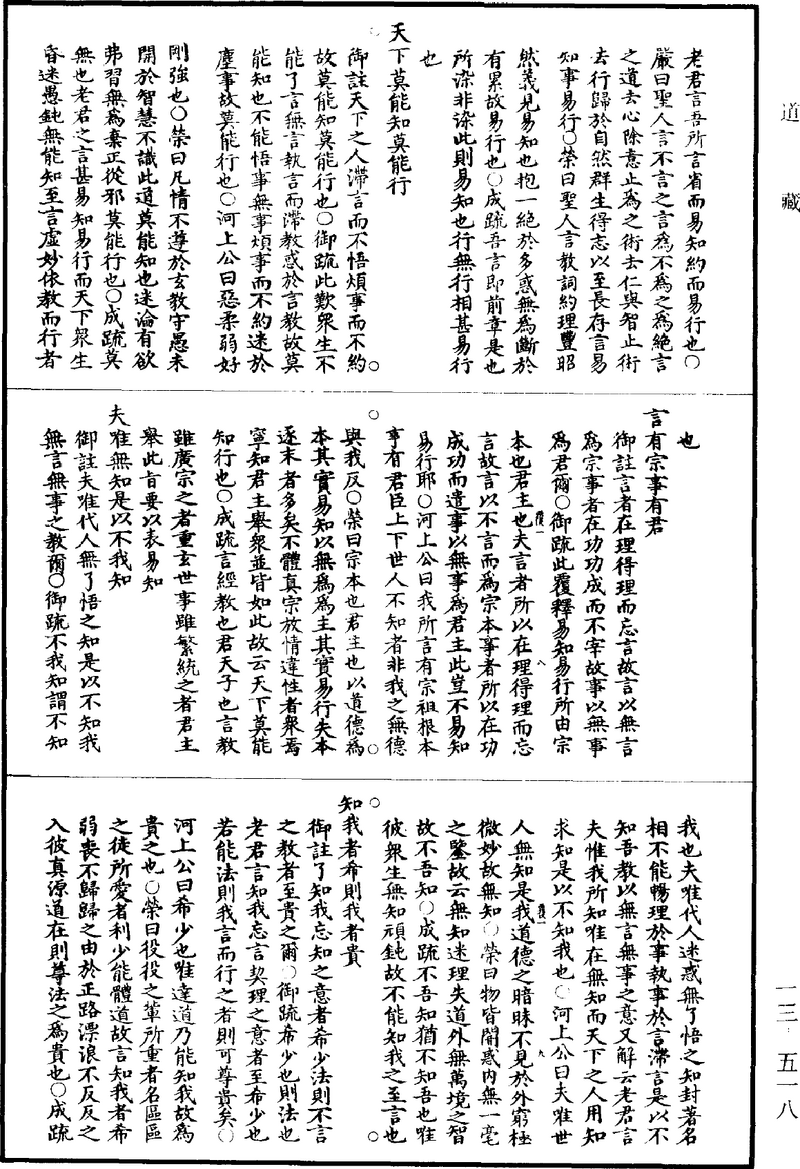 道藏
一三·五一八
老君言吾所言省而易知約而易行也○
嚴曰聖人言不言之言為不為之為絕言
之道去心除意止為之術去仁與智止術
去行歸於自然群生得志以至長存言易
知事易行○榮曰聖人言教詞約理豐昭
然義見易知也抱一絕於多惑無為斷於
有累故易行也○成疏吾言即前章是也
所染非染此則易知也行無行相甚易行
也
天下莫能知莫能行
御註天下之人滯言而不悟煩事而不約
故莫能知莫能行也○御疏此歎衆生不
能了言無言執言而滯教惑於言教故莫
能知也不能悟事無事煩事而不約迷於
塵事故莫能行也○河上公曰惡柔弱好
剛強也○榮曰凡情不遵於玄教守愚未
開於智慧不識此道莫能知也迷淪有欲
弗習無為棄正從邪莫能行也○成疏莫
無也老君之言甚易知易行而天下衆生
昏迷愚鈍無能知至言虛妙依教而行者
也
言有宗事有君
御註言者在理得理而忘言故言以無言
為宗事者在功功成而不宰故事以無事
為君爾○御疏此覆釋易知易行所由宗
本也君主也夫言者所以在理得理而忘
言故言以不言而為宗本事者所以在功
成功而遣事以無事為君主此豈不易知
易行耶○河上公曰我所言有宗祖根本
事有君臣上下世人不知者非我之無德
與我反○榮曰宗本也君主也以道德為
本其實易知以無為為主其實易行夫本
逐末者多矣不體真宗放情違性者衆焉
寧知君主舉衆並皆如此故云天下莫能
知行也○成疏言經教也君天子也言教
雖廣宗之者重玄世事雖繁統之者君主
舉此旨要以表易知
夫唯無知是以不我知
御註夫唯代人無了悟之知是以不知我
無言無事之教爾○御疏不我知謂不知
我也夫唯代人迷惑無了悟之知封著名
相不能暢理於事執事於言滯言是以不
知吾教以無言無事之意又解云老君言
夫惟我所知唯在無知而天下之人用知
求知是以不知我也○河上公曰夫唯世
人無知是我道德之暗昧不見於外窮極
微妙故無知○榮曰物皆闇惑內無一毫
之鑒故云無知迷理失道外無萬境之智
故不吾知○成疏不吾知猶不知吾也唯
彼衆生無知頑鈍故不能知我之至言也
知我者希則我者貴
御註了知我忘知之意者希少法則不言
之教者至貴之爾○御疏希少也則法也
老君言知我忘言契理之意者至希少也
若能法則我言而行之者則可尊貴矣○
河上公曰希少也唯達道乃能知我故為
貴之也○榮曰役役之輩所重者名區區
之徒所愛者利少能體道故言知我者希
弱喪不歸歸之由於正路漂浪不反反之
入彼真源道在則尊法之為貴也○成疏